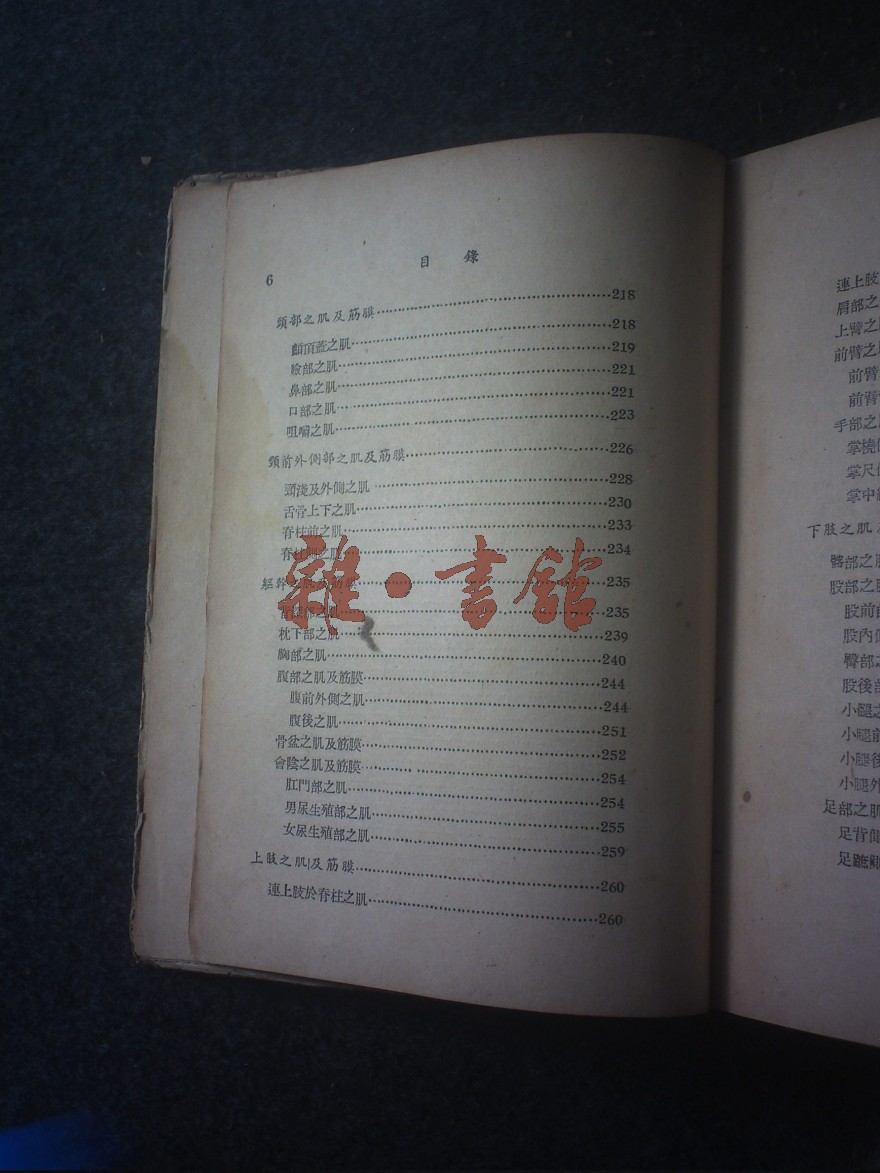 6
目 錄
頭部之肌及筋膜 218
顱頂蓋之肌 218
瞼部之肌 219
鼻部之肌 221
口部之肌 221
咀嚼之肌 223
頸前外側部之肌及筋膜 226
頸淺及外側之肌 228
舌骨上下之肌 230
脊柱前之肌 233
脊柱側之肌 234
軀幹之肌及筋膜 235
部之肌 235
枕下部之肌 239
胸部之肌 240
腹部之肌及筋膜 244
腹前外側之肌 244
腹後之肌 251
骨盆之肌及筋膜 252
會陰之肌及筋膜 254
肛門部之肌 254
男尿生殖部之肌 255
女尿生殖部之肌 259
上肢之肌及筋膜 260
連上肢於脊柱之肌 260
雜·書館
連上肢
肩部之
上臂之
前臂之
前臂
前臂
手部之
掌橈
掌尺
掌中
下肢之肌
髂部之
股部之
股前
股內
臀部
股後
小腿之
小腿前
小腿後
小腿外
足部之肌
足背側
足蹠側